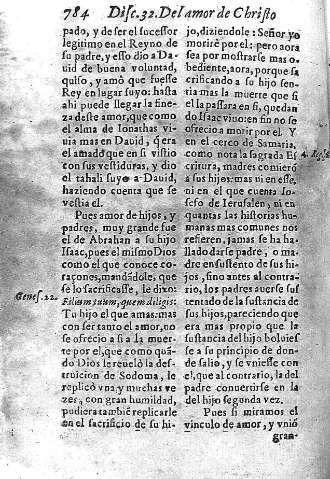 784 Disc. 32. Del amor de Christo
pado, y de ser el sucessor
legitimo en el Reyno de
su padre, y esso dio a Da-
uid de buena voluntad,
quiso, y amò que fuesse
Rey en lugar suyo: hasta
ahi puede llegar la fine-
za deste amor, que como
el alma de Ionathas vi-
uia mas en Dauid, q̃ era
el amado que en si vistio
con sus vestiduras, y dio
el tahali suyo a Dauid,
haziendo cuenta que se
vestia el.
Pues amor de hijos, y
padres, muy grande fue
el de Abrahan a su hijo
Isaac, pues el mismo Dios
como el que conoce co-
raçones, mandãdole, que
se lo sacrificasse, le dixo:
Genes. 22.
Filium tuum, quem diligis:
Tu hijo el que amas: mas
con ser tanto el amor, no
se ofrecio a si a la muer-
te por el, que como quã-
do Dios le reuelò la des-
truicion de Sodoma, le
replicò vna, y muchas ve-
zes, con gran humildad,
pudiera tambiẽ replicarle
en el sacrificio de su hi-
jo, diziendole: Señor yo
morirè por el: pero aora
sea por mostrarse mas o-
bediente, aora, porque sa-
crificando a su hijo sen-
tia mas la muerte que si
el la passara en si, quedan
do Isaac viuo: en fin no se
ofrecio a morir por el. Y
en el cerco de Samaria,
como nota la sagrada Es
4. Reg. 6.
critura, madres comierõ
a sus hijos: mas ni en esse,
ni en el que cuenta Io-
sefo de Ierusalen, ni en
quantas las historias hu-
manas mas comunes nos
refieren, jamas se ha ha-
llado darse padre, o ma-
dre en sustento de sus hi-
jos, sino antes al contra-
rio, los padres auerse sus-
tentado de la sustancia de
sus hijos, pareciendo que
era mas propio que la
sustancia del hijo boluies-
se a su principio de don-
de salio, y se vniesse con
el, que al contrario, la del
padre conuertirse en la
del hijo segunda vez.
Pues si miramos el
vinculo de amor, y vniò
gran-